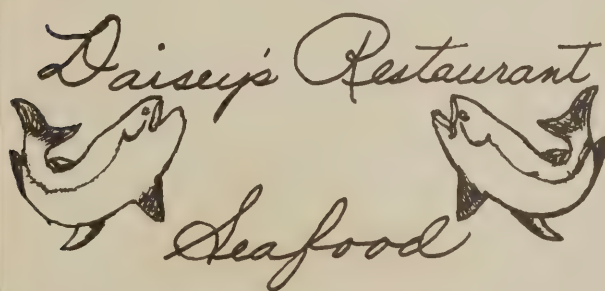 Daisey's Restaurant
Seafood